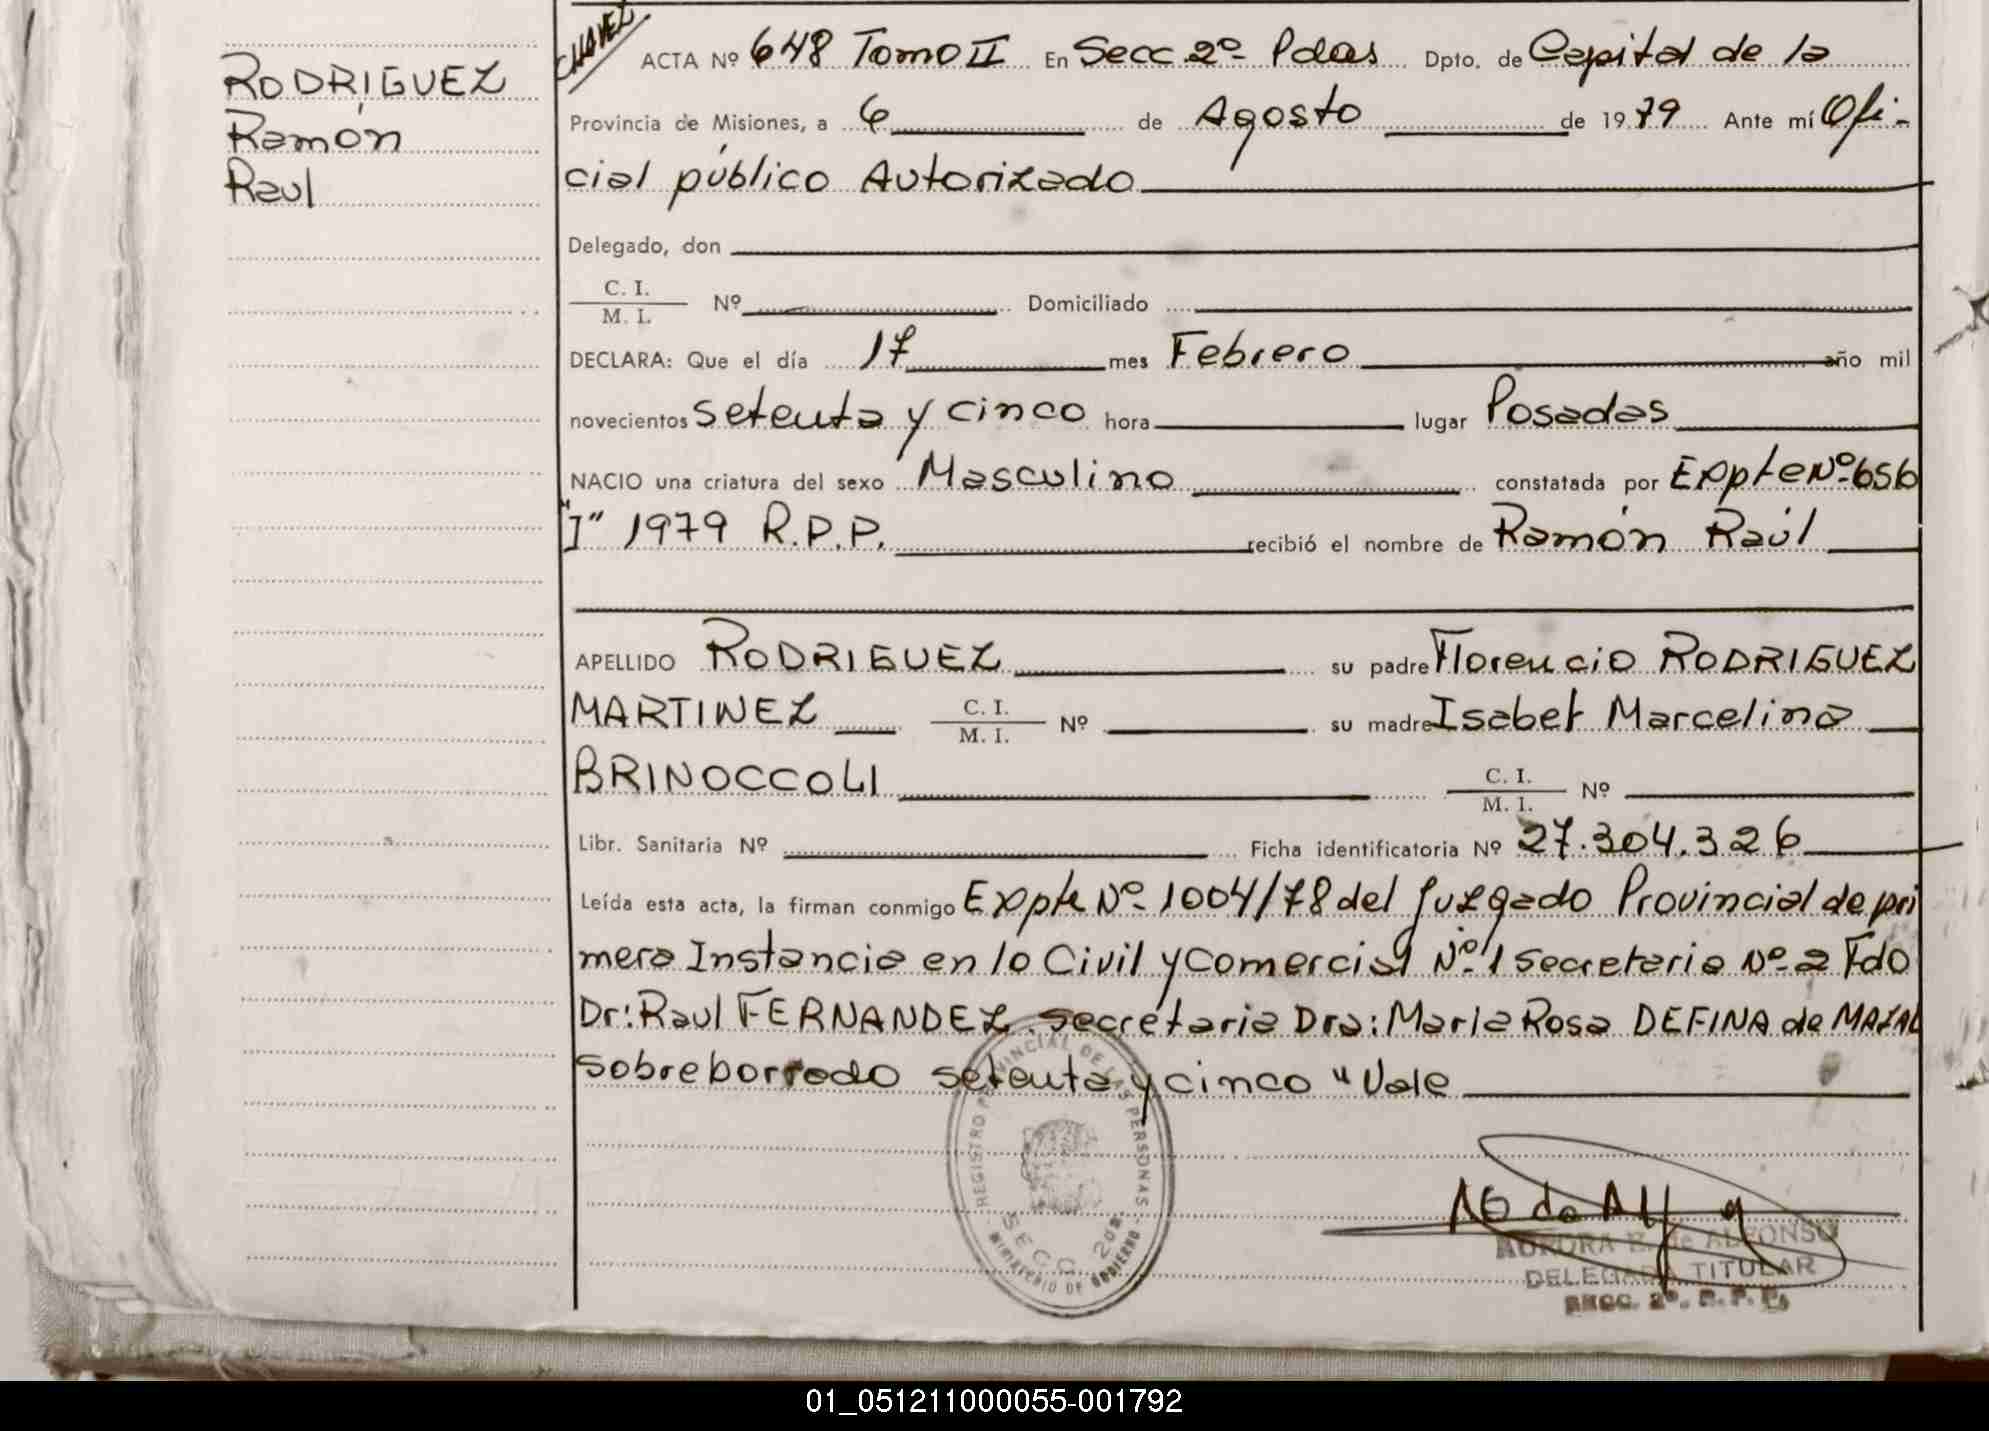 RODRÍGUEZ
Ramón
Raul
CHAVEZ
ACTA Nº 648 Tomo II En Secc 2º Pdas Dpto. de Capital de la
Provincia de Misiones, a 6 de Agosto de 1979 Ante mí Ofi-
cial público Autorizado
Delegado, don
C. I.
M. I. Nº Domiciliado
DECLARA: Que el día 17 mes Febrero año mil
novecientos setenta y cinco hora lugar Posadas
NACIO una criatura del sexo Masculino constatada por Expte Nº 656
"I" 1979 R.P.P. recibió el nombre de Ramón Raúl
APELLIDO RODRIGUEZ su padre Florencio RODRIGUEZ
MARTINEZ C. I. M. I. Nº su madre Isabel Marcelina
BRINOCCOLI C. I. M. I. Nº
Libr. Sanitaria Nº Ficha identificatoria Nº 27.304.326
Leída esta acta, la firman conmigo Expte Nº 1004/78 del Juzgado Provincial de pri
mera Instancia en lo Civil y Comercial Nº 1 secretaria Nº 2 Fdo
Dr: Raul FERNANDEZ secretaria Dra: Maria Rosa DEFINA de MAZAL
sobreborrado setenta y cinco "Vale
REGISTRO PROVINCIAL DE LAS PERSONAS
SECC 2da
MINISTERIO DE GOBIERNO
AURORA E. de ALFONSO
DELEGADA TITULAR
SECC. 2º. R. P. P.
01_051211000055-001792